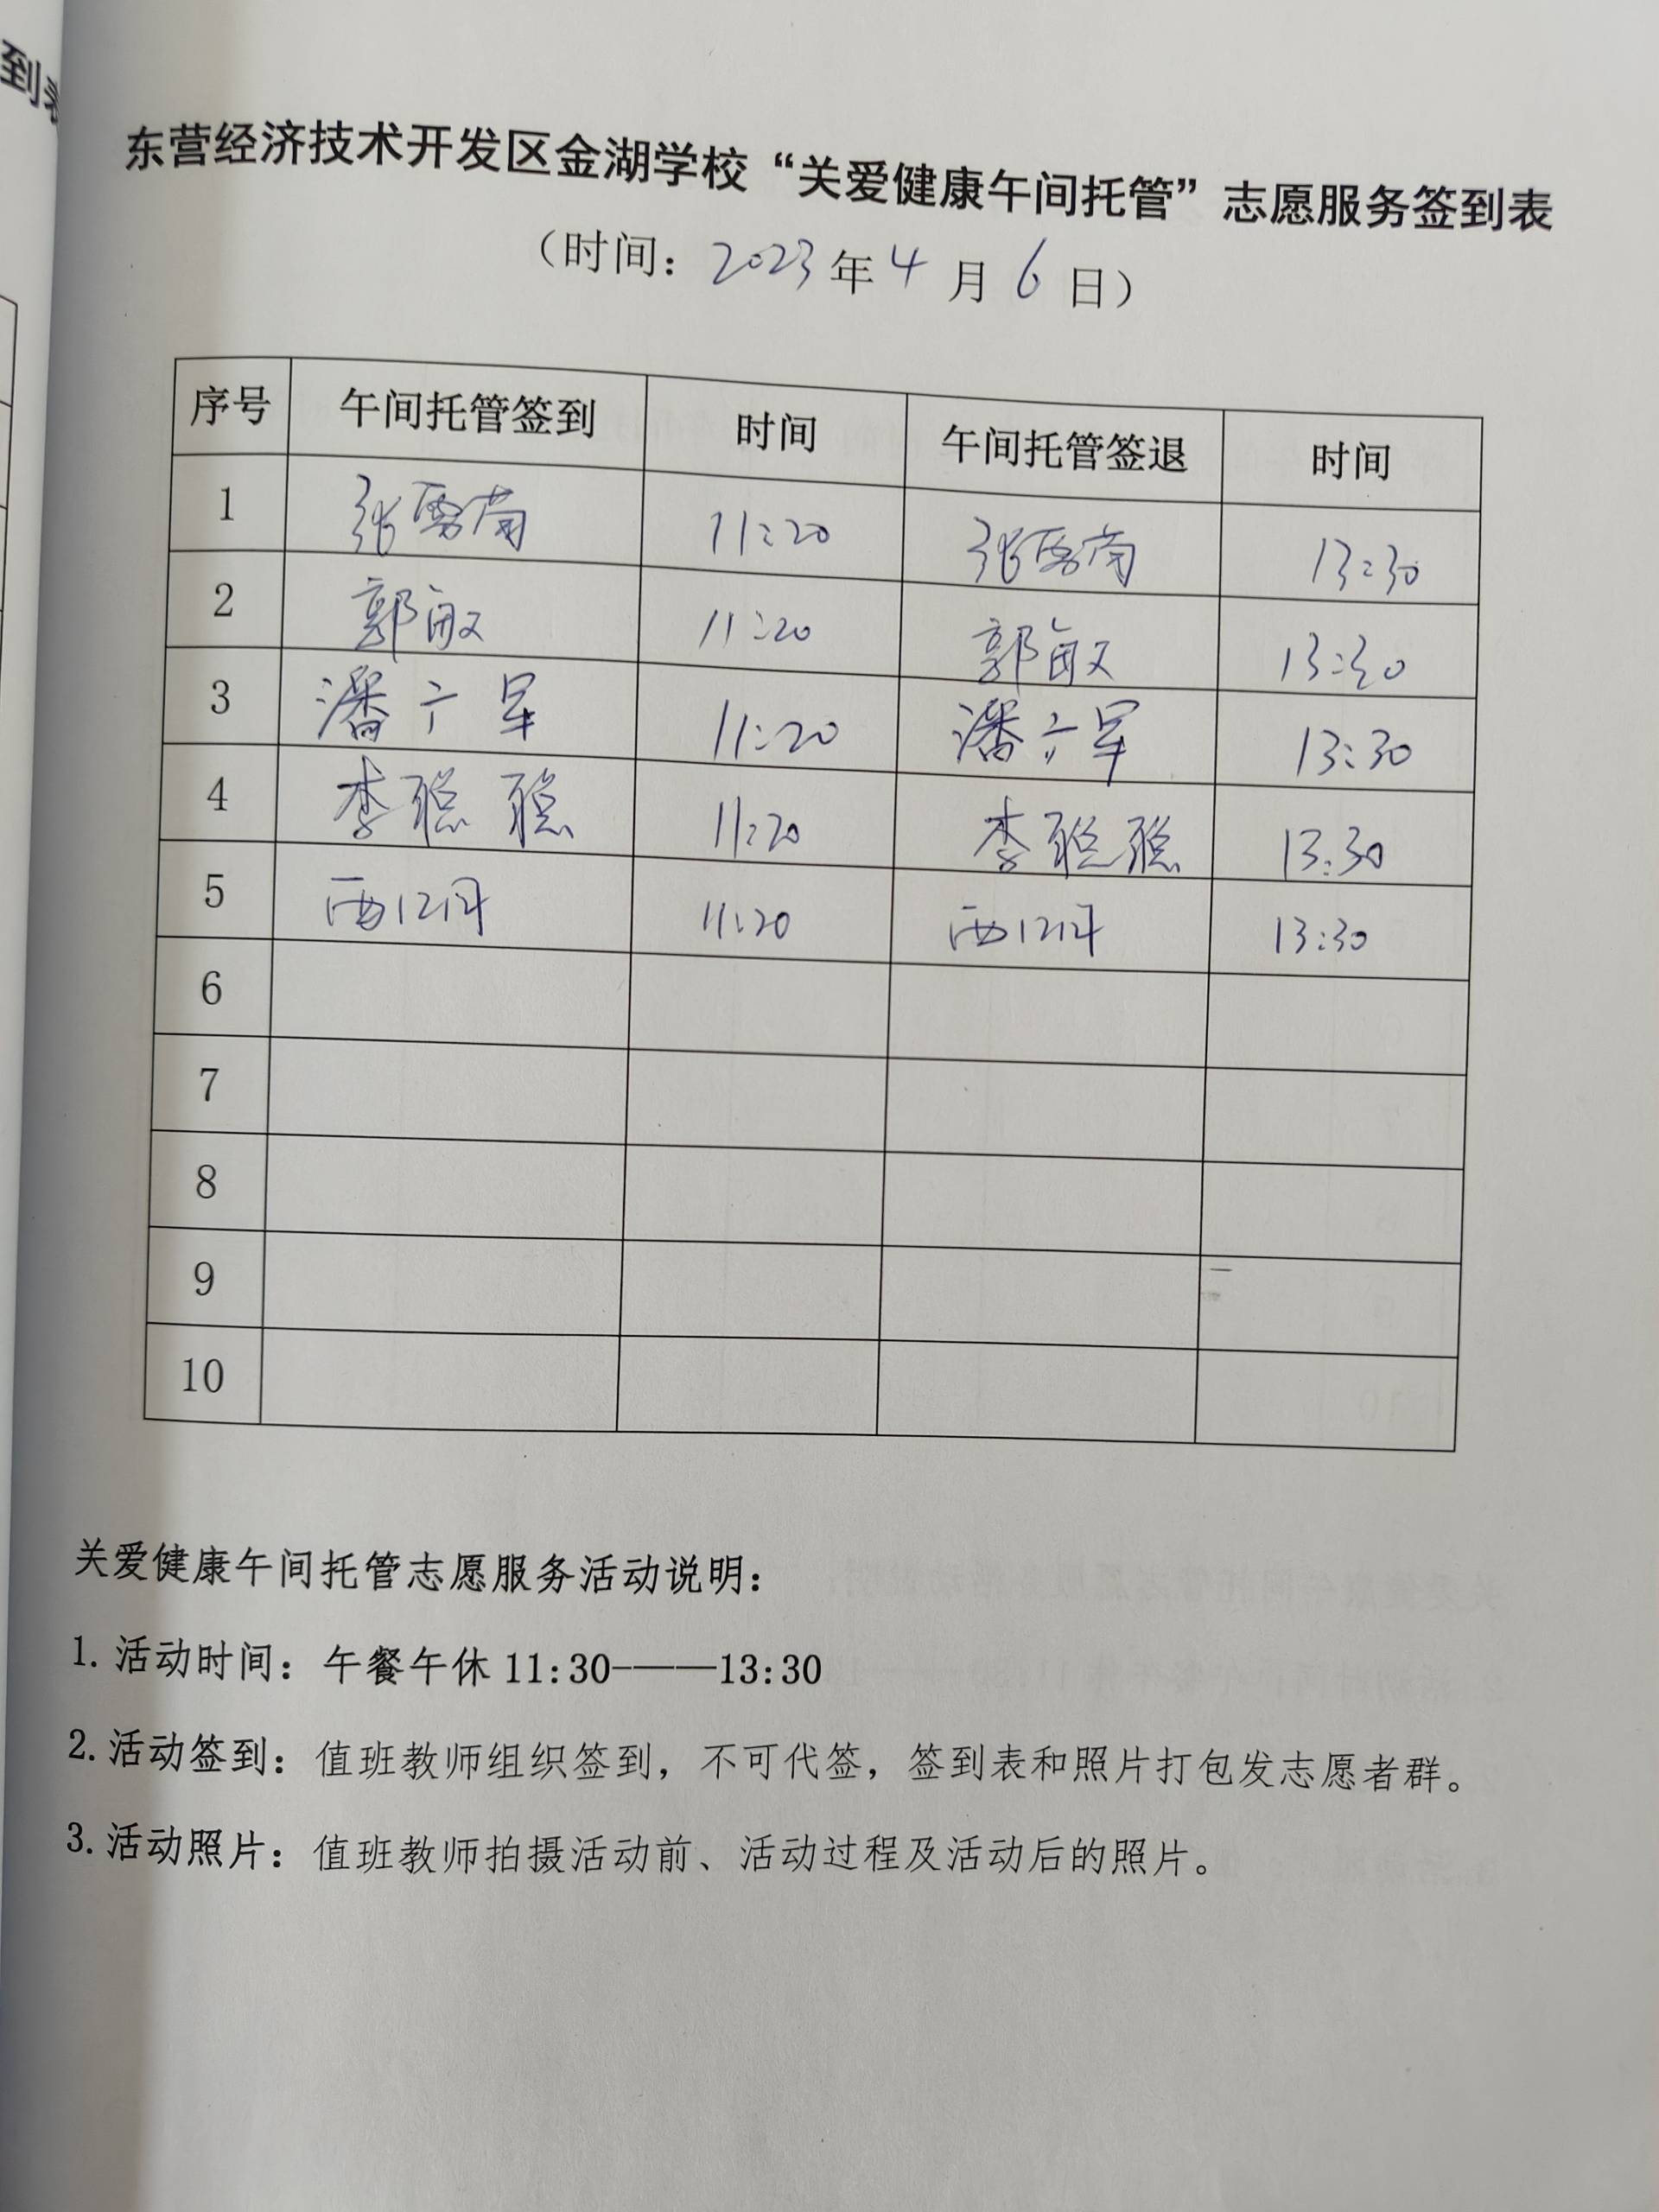 到表
东营经济技术开发区金湖学校“关爱健康午间托管”志愿服务签到表
（时间：2023年4月6日）
序号 午间托管签到 时间 午间托管签退 时间
1 张雪菊 11:20 张雪菊 13:30
2 郭敏 11:20 郭敏 13:30
3 潘广军 11:20 潘广军 13:30
4 李聪聪 11:20 李聪聪 13:30
5 11:20 13:30
6
7
8
9
10
关爱健康午间托管志愿服务活动说明：
1.活动时间：午餐午休11:30-——13:30
2.活动签到：值班教师组织签到，不可代签，签到表和照片打包发志愿者群。
3.活动照片：值班教师拍摄活动前、活动过程及活动后的照片。